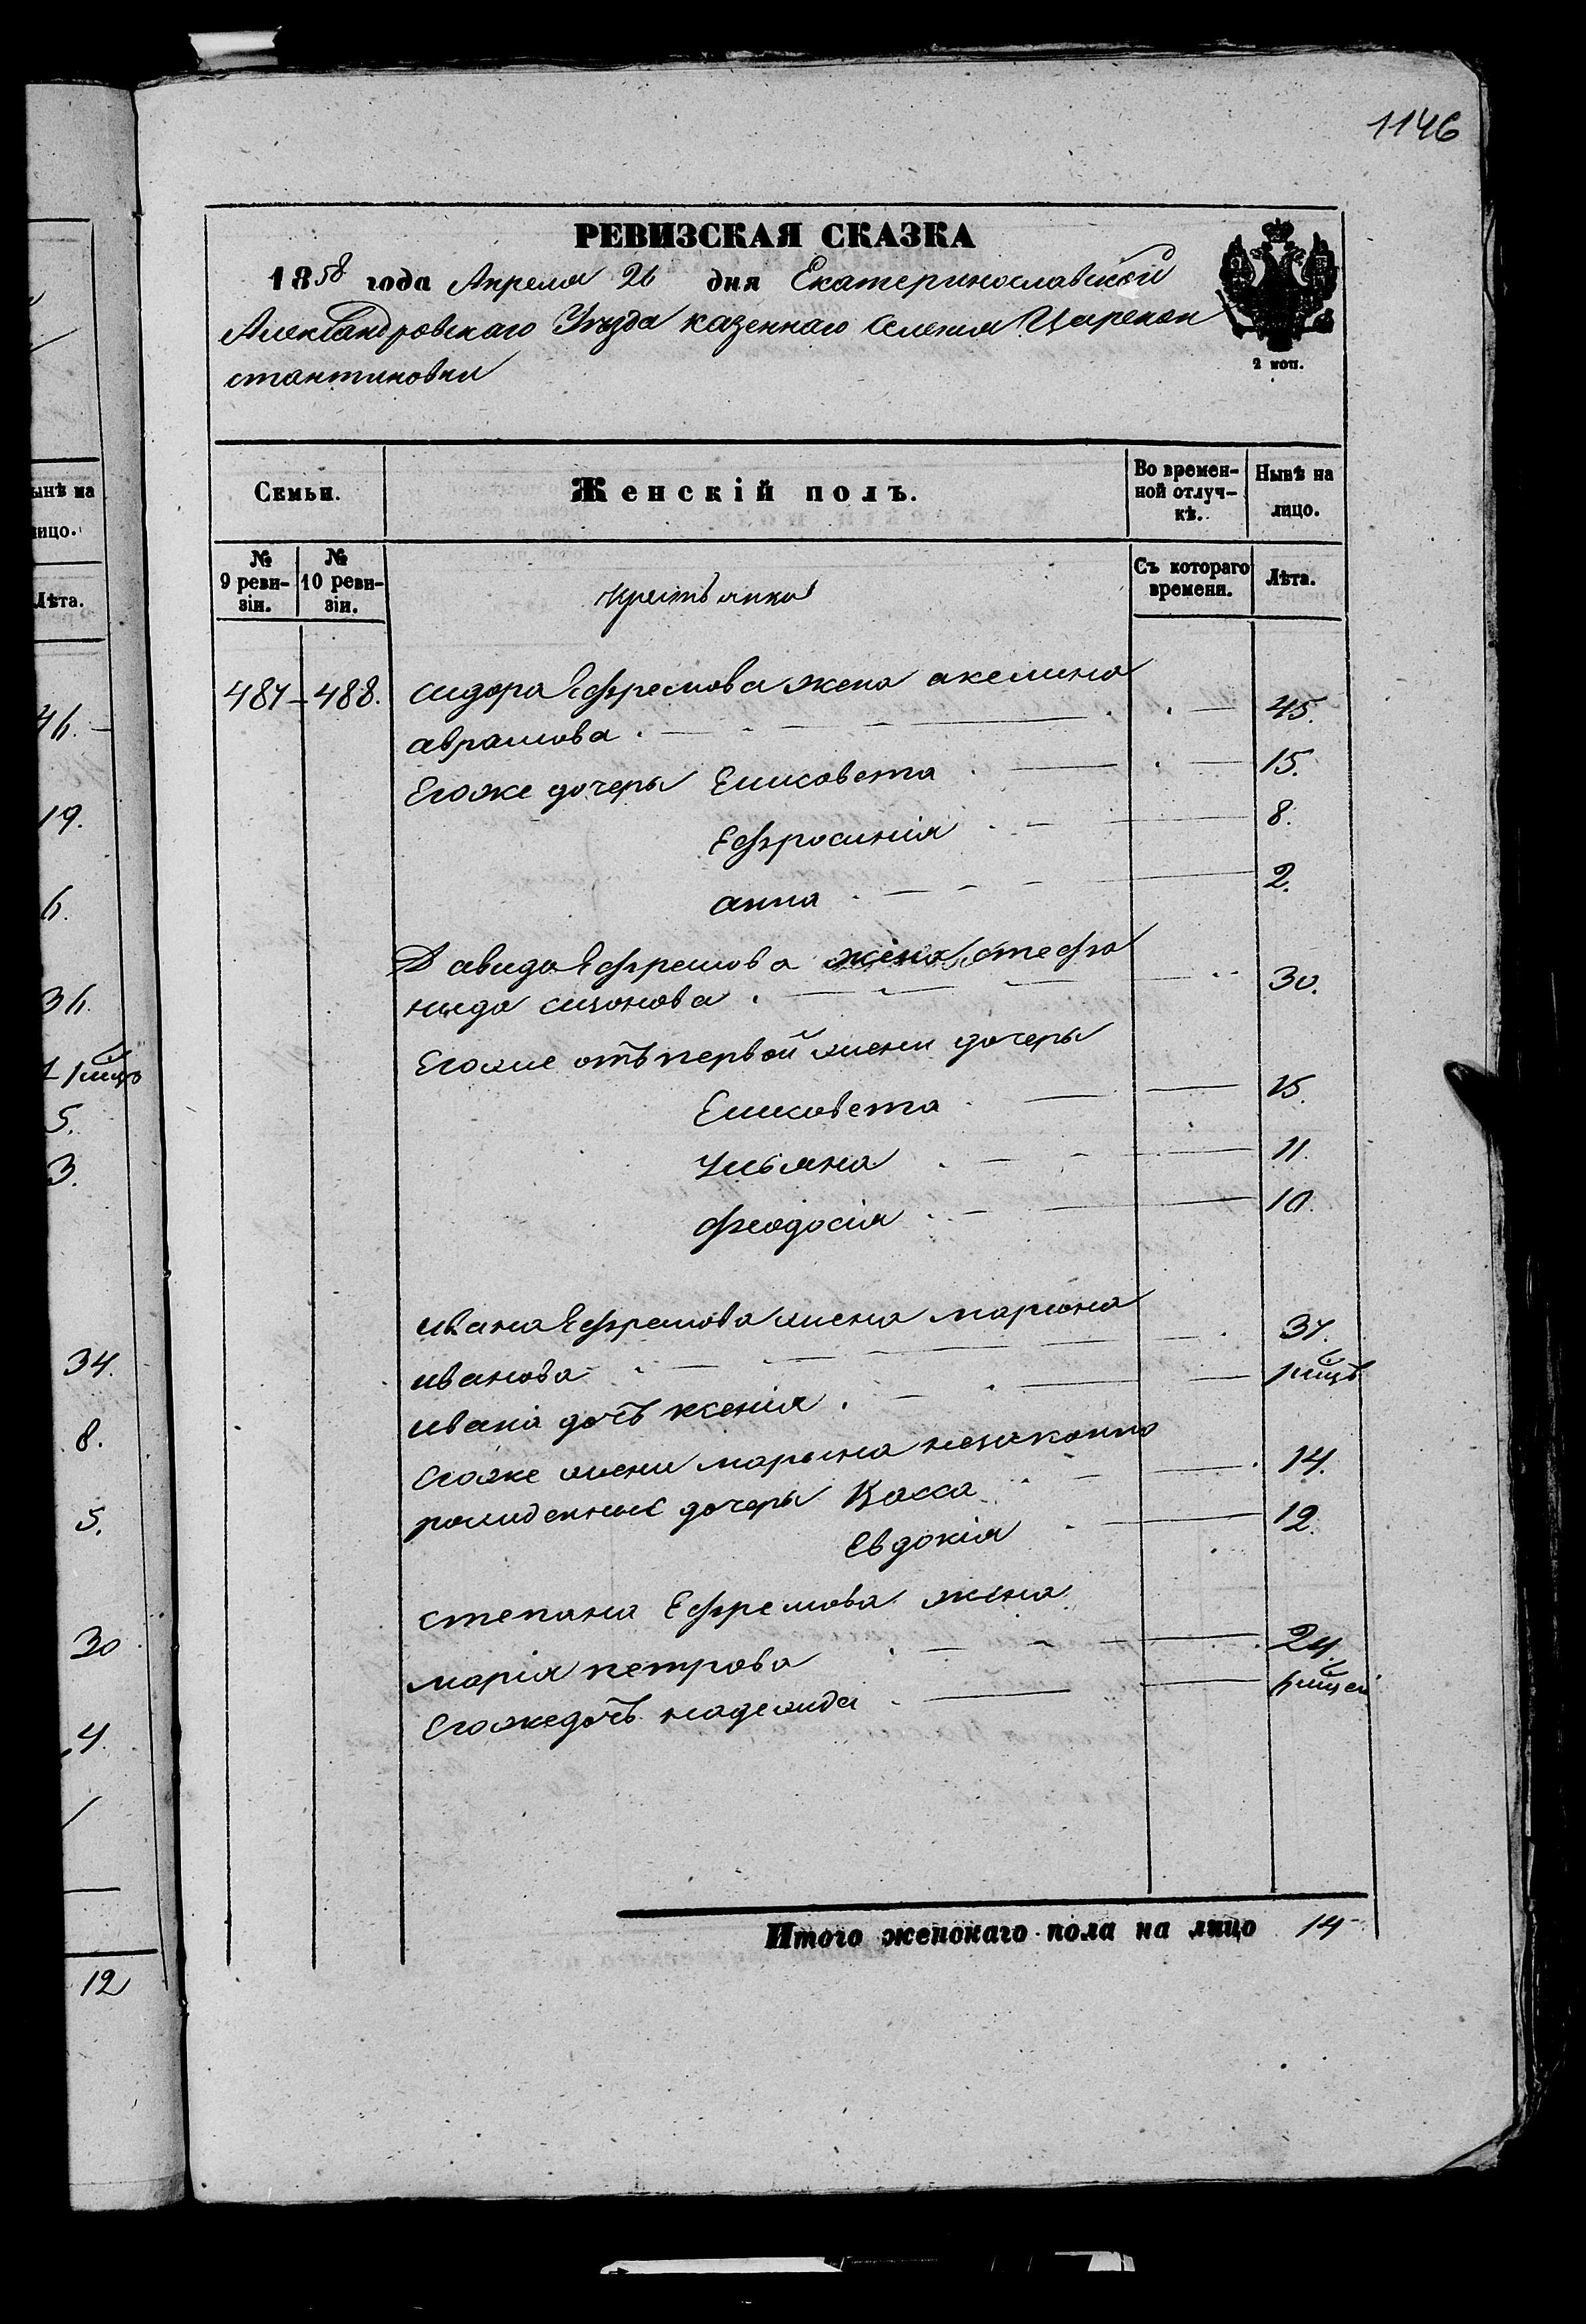 1146
РЕВИЗСКАЯ СКАЗКА
1858 года Апреля 26 дня Екатеринославской
Александровскаго Уезда казеннаго Селения Царекон
стантиновки
2 коп.
Семьи. Женскій полъ. Во времен- Нынѣ на
ной отлуч- лицо.
кѣ.
№ № Съ котораго Лѣта.
9 реви- 10 реви- крестьянки времени.
зіи. зіи.
487 - 488. сидора Ефремова жена акелина
аврамова 45.
Егоже дочеры Елисовета 15.
Ефросинія 8.
анна 2.
Давида Ефремова жена Стефа
нида сизонова 30.
Егоже отъ первой жены дочеры
Елисовета 15.
Ульяна 11.
феодосия 10.
ивана Ефремова жена марiона
иванова 37.
ивана дочь ксения
Егоже жены марьяна незаконно
рожденные дочеры Васса 14.
Евдокия 12.
степана Ефремова жена
мария петрова 24.
Егоже дочь надежда
Итого женскаго пола на лицо 14
ынѣ на
лицо.
Лѣта.
46.
19.
6.
36.
5.
3.
34.
8.
5.
30
4.
12